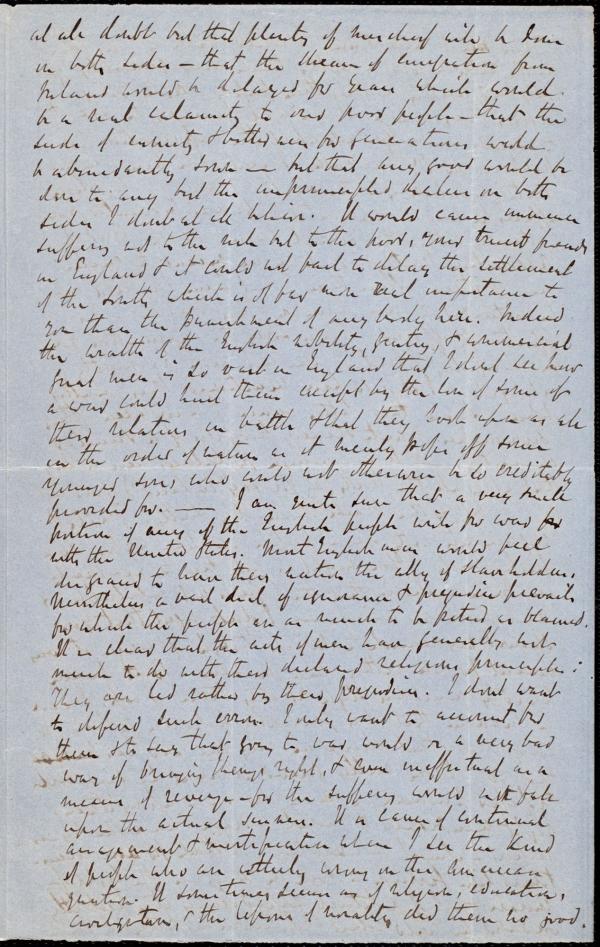 at all doubt but that plenty of mischief will be done
on both sides – that the stream of emigration from
Ireland would be delayed for years which would
be a real calamity to our poor people – that the
seeds of enmity & bitterness for generations would
be abundantly sown – but that any good would be
done to any but the unprincipled dealers on both
sides I don't at all believe. It would cause immense
suffering not to the rich but to the poor, your truest friends
in England & it could not fail to delay the settlement
of the South, which is of far more real importance to
you than the punishment of any body here. Indeed
the wealth of the English nobility, gentry, & commercial
great men is so vast in England that I don't see how
a war could hurt them except by the loss of some of
their relations in battle & that they look upon as all
in the order of nature as it merely pops off some
younger sons who could not otherwise be so creditably
provided for. — I am quite sure that a very small
portion of any of the English people wish for war
with the United States. Most Englishmen would feel
disgraced to have their nation the ally of slaveholders.
Nevertheless a vast deal of ignorance & prejudice prevails
for which the people are as much to be pitied as blamed.
It is clear that the acts of men have generally not
much to do with their declared religious principles:
They are led rather by their prejudices. I don't want
to defend such errors. I only want to account for
them & to say that going to war would be a very bad
way of bringing things right, & even ineffectual as a
means of revenge – for the suffering would not fall
upon the actual sinners. It is cause of continual
amazement & mortification when I see the kind
of people who are utterly wrong on the American
question. It sometimes seems as if religion, education,
civilization, & the lessons of morality did them no good.